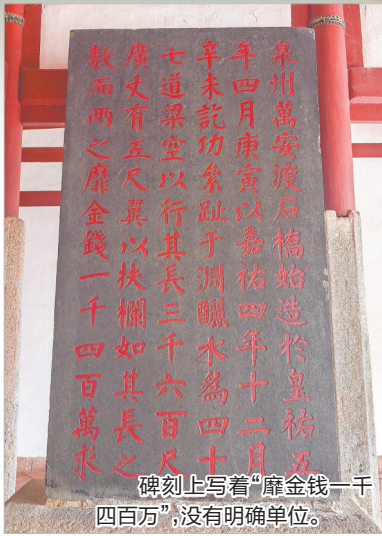 泉州萬安渡石橋始造於皇祐五
年四月庚寅以嘉祐四年十二月
辛未訖功絫趾于淵釃水為四十
七道梁空以行其長三千六百尺
廣丈有五尺翼以扶欄如其長之
數而兩之靡金錢一千四百萬求
碑刻上写着“靡金钱一千
四百万”,没有明确单位。